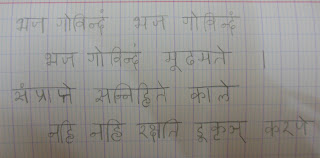 भज गोविन्दं भज गोविन्दं
भज गोविन्दं मूढमते ।
संप्राप्ते सन्निहिते काले
नहि नहि रक्षति डुकृञ् करणे